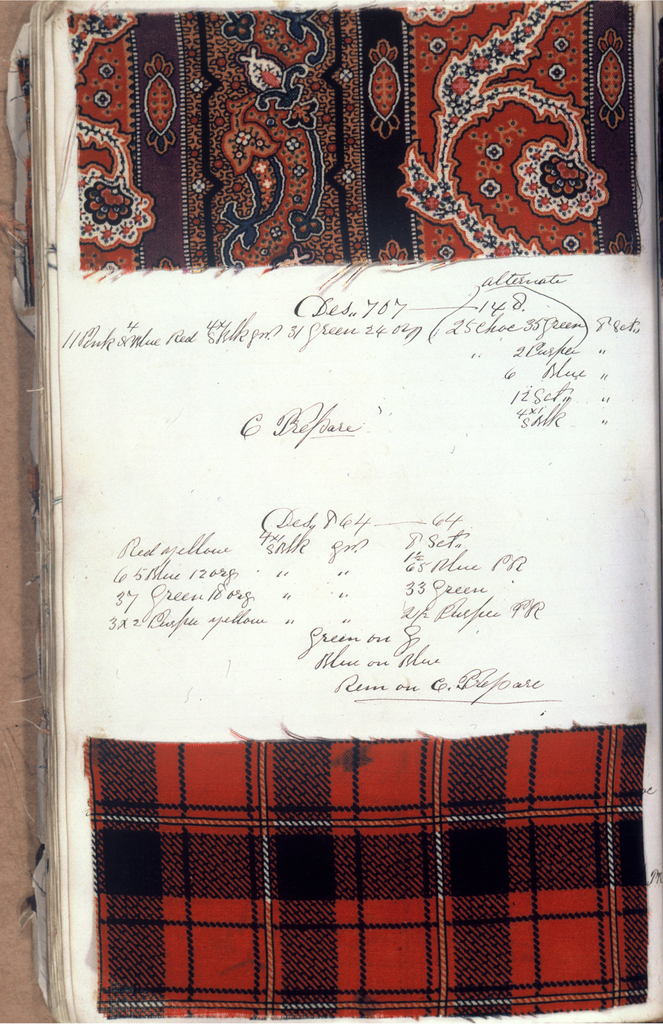 alternate
Des. 707 — 148.
11 Pink 4/8 Blue Red 4x1/8 Blk grd. 31 Green 24 org (25 choc 35 Green) 8 Sct.,
" 2 Purper "
6 Blue "
12 Sct., "
4x1/8 Blk "
C Prepare
Des, 864 — 64
Red yellow 4x1/8 Blk grd 8 Sct.,
65 Blue 12 org " " 65 Blue PR
37 Green 18 org " " 33 Green
3x2 Purper yellow " " 2/2 Purper PR
Green on G
Blue on Blue
Rem on C. Prepare